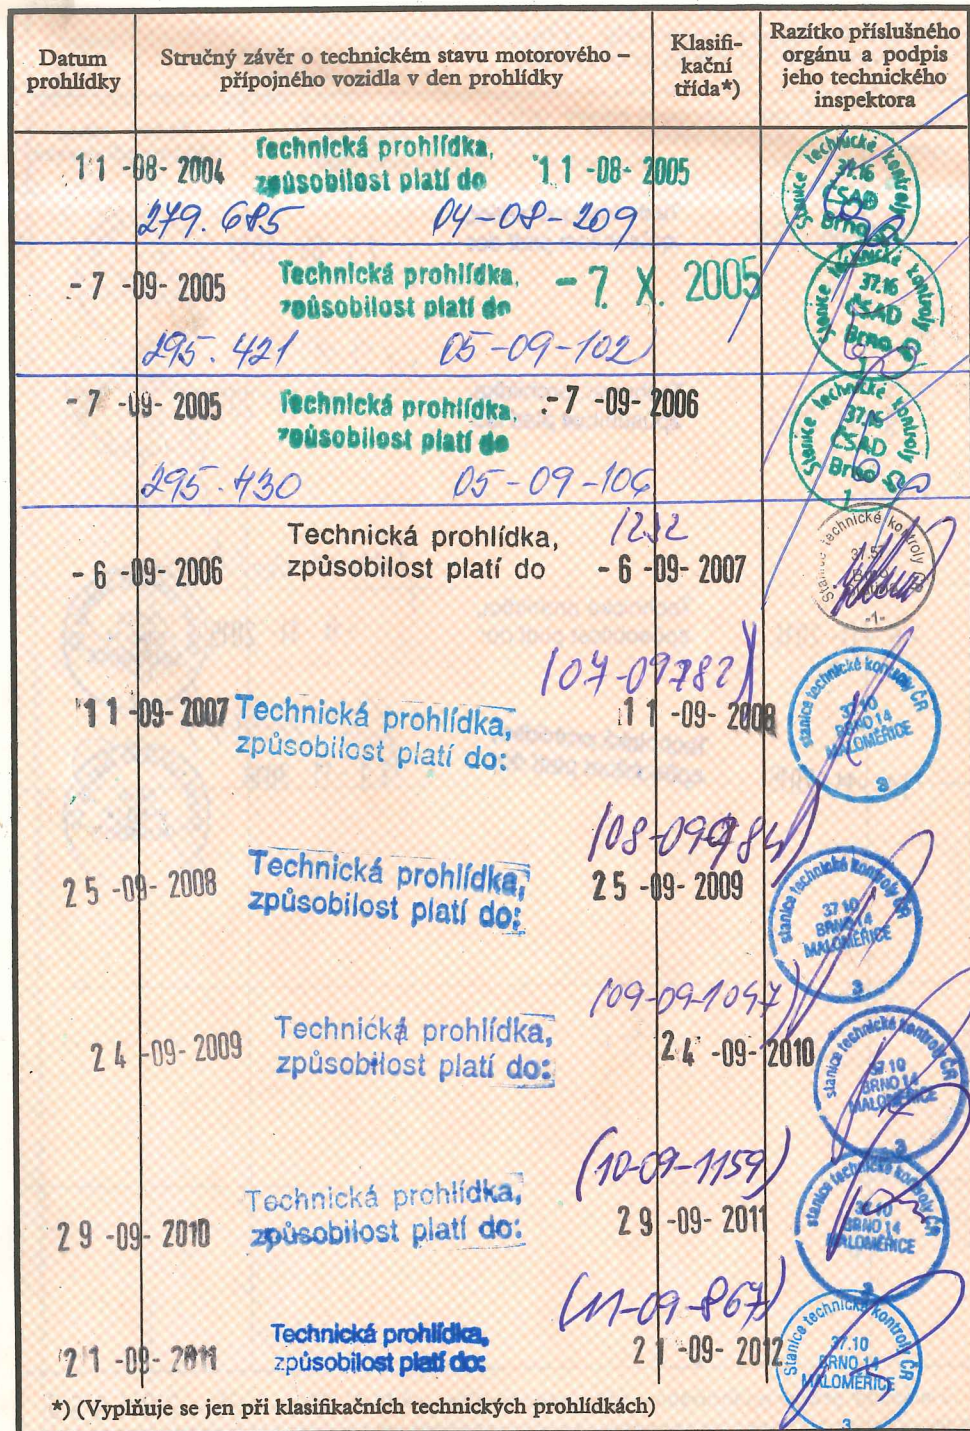 Datum prohlídky
Stručný závěr o technickém stavu motorového – přípojného vozidla v den prohlídky
Klasifi-
kační
třída*)
Razítko příslušného
orgánu a podpis
jeho technického
inspektora
11 -08- 2004 Technická prohlídka, způsobilost platí do 11 -08- 2005
279.685 04-08-209
Stanice technické kontroly 37.16 ČSAD Brno 1
- 7 -09- 2005 Technická prohlídka, způsobilost platí do - 7. X. 2005
295.421 05-09-102
Stanice technické kontroly 37.16 ČSAD Brno 1
- 7 -09- 2005 Technická prohlídka, způsobilost platí do - 7 -09- 2006
295.430 05-09-106
Stanice technické kontroly 37.16 ČSAD Brno 1
- 6 -09- 2006 Technická prohlídka, způsobilost platí do - 6 -09- 2007
Stanice technické kontroly -1-
(07-09782)
11 -09- 2007 Technická prohlídka, způsobilost platí do: 11 -09- 2008
stanice technické kontroly ČR 37.10 BRNO 14 MALOMĚŘICE 3
25 -09- 2008 Technická prohlídka, způsobilost platí do: 25 -09- 2009
stanice technické kontroly ČR 37.10 BRNO 14 MALOMĚŘICE 3
(09-09-1047)
24 -09- 2009 Technická prohlídka, způsobilost platí do: 24 -09- 2010
stanice technické kontroly ČR 37.10 BRNO 14 MALOMĚŘICE 3
(10-09-1159)
29 -09- 2010 Technická prohlídka, způsobilost platí do: 29 -09- 2011
stanice technické kontroly ČR 37.10 BRNO 14 MALOMĚŘICE 3
(11-09-867)
21 -09- 2011 Technická prohlídka, způsobilost platí do: 21 -09- 2012
Stanice technické kontroly ČR 37.10 BRNO 14 MALOMĚŘICE 3
*) (Vyplňuje se jen při klasifikačních technických prohlídkách)